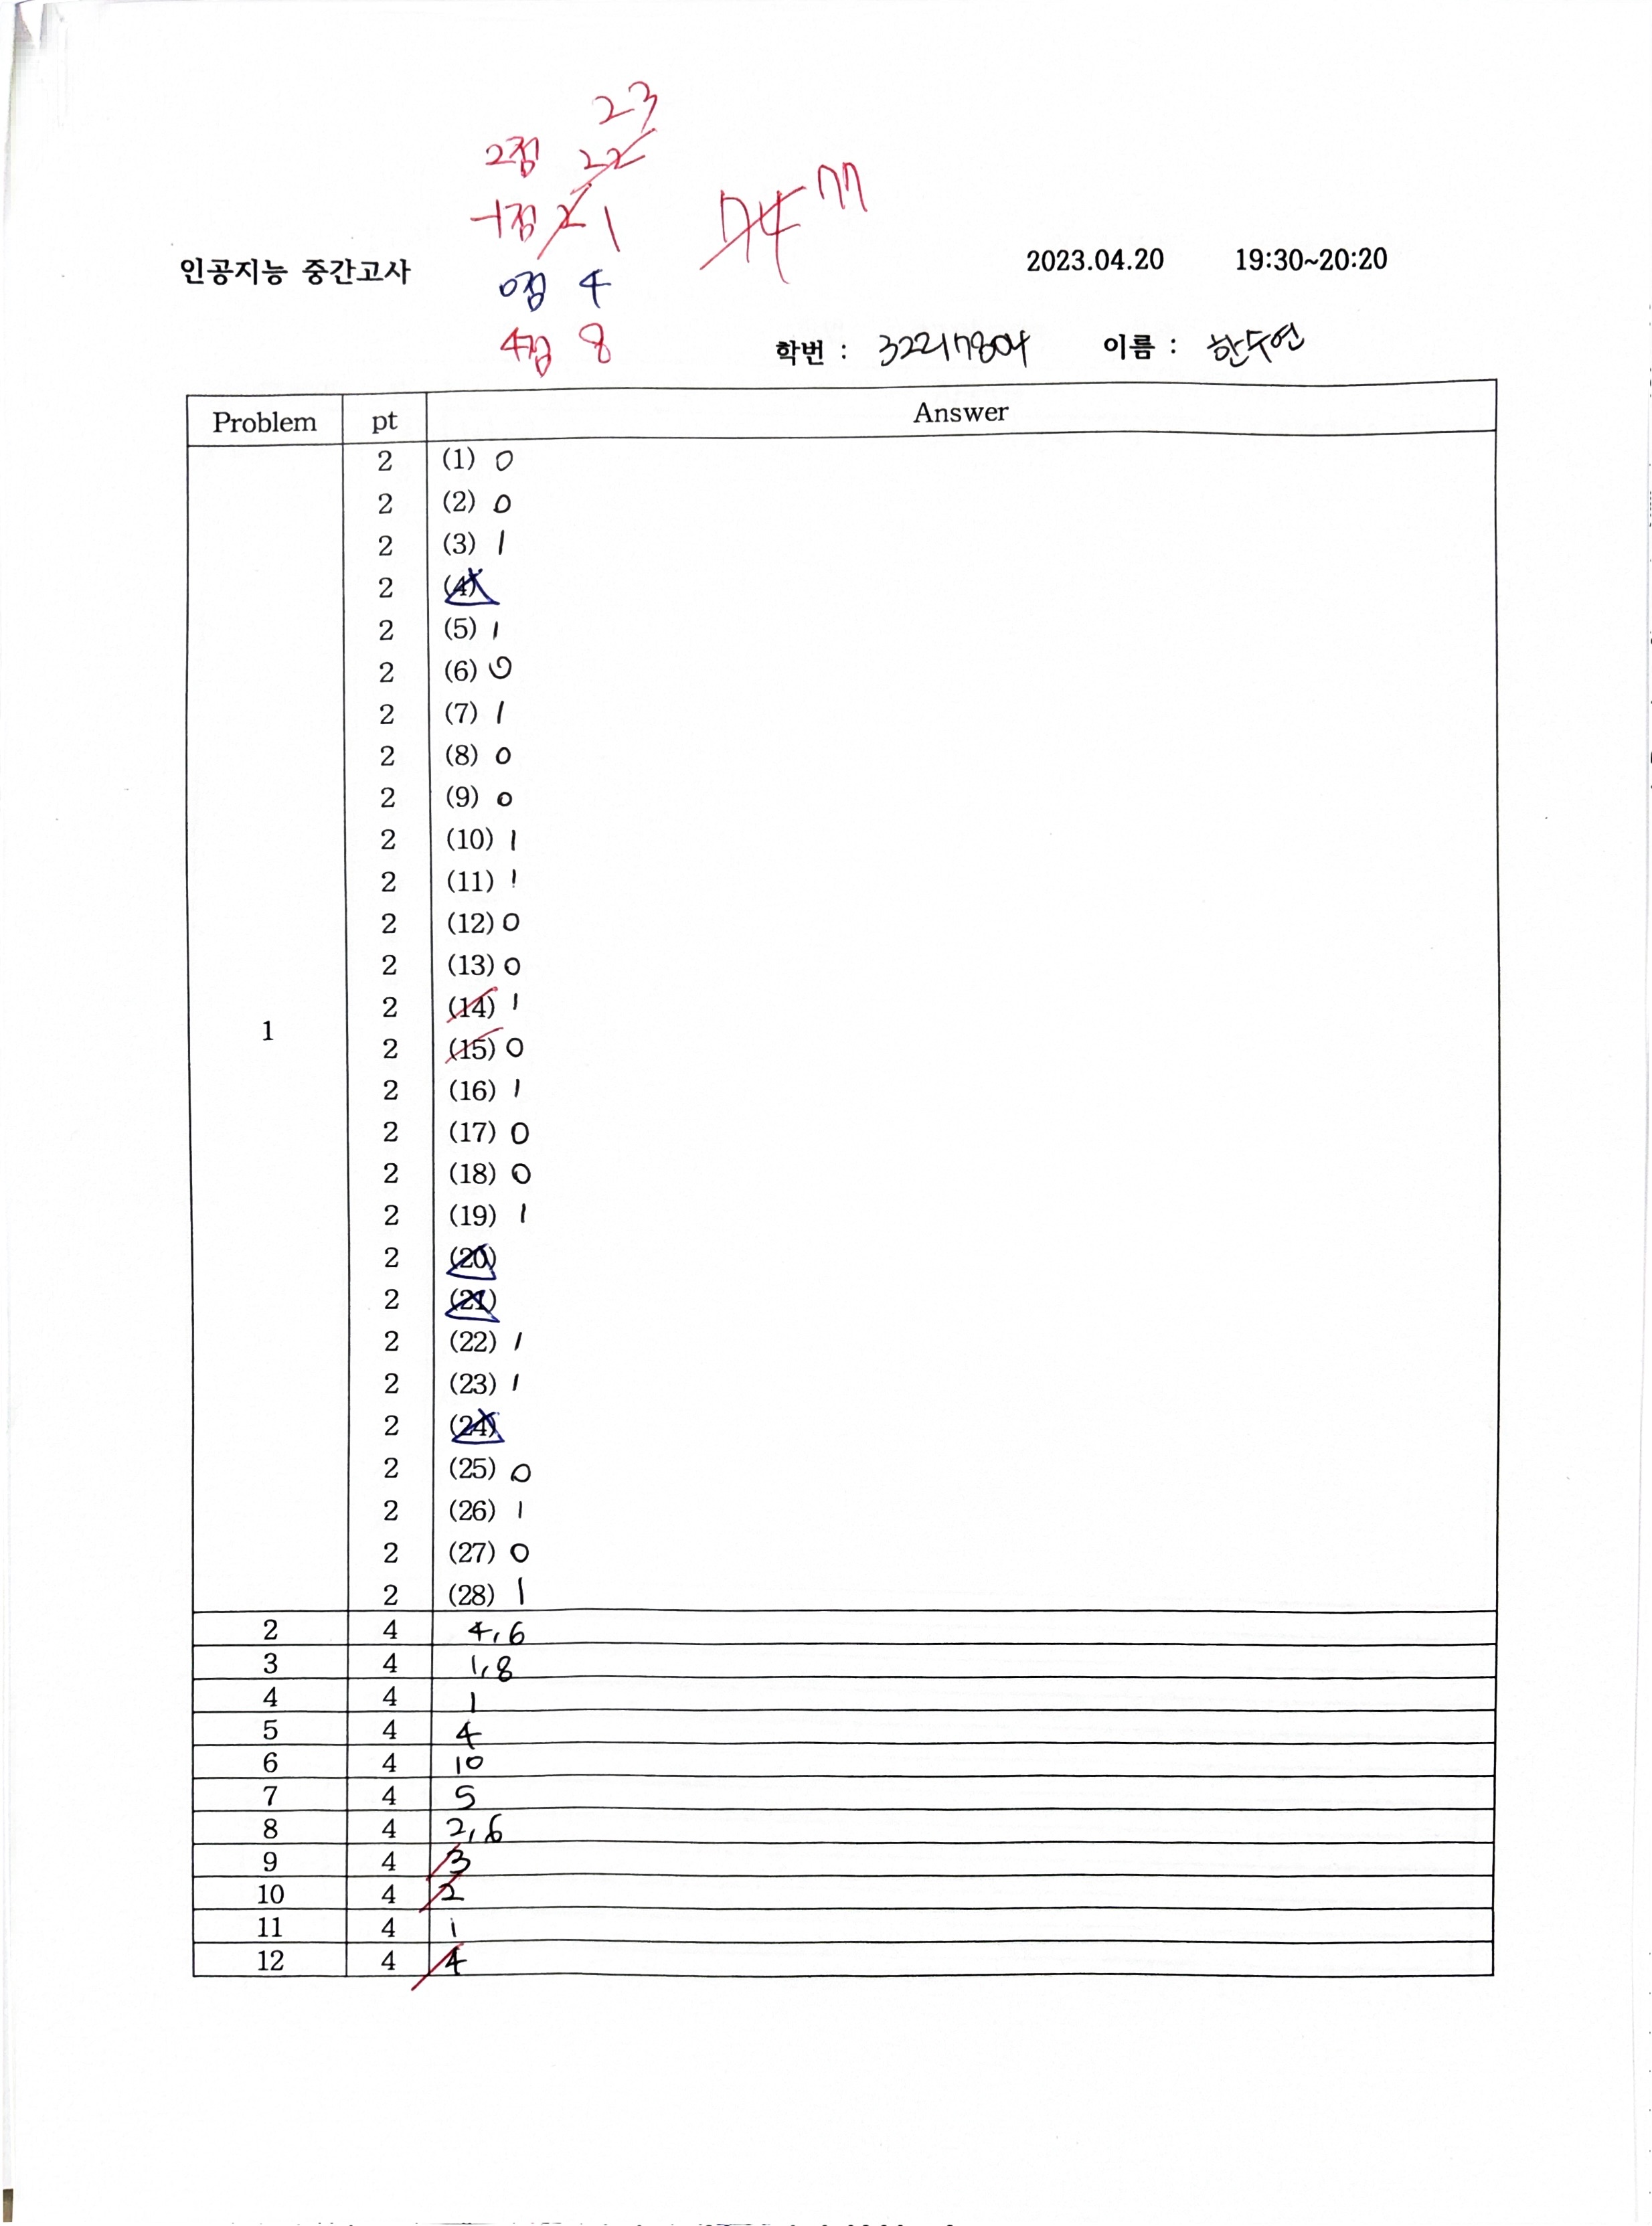 23
2점 22
-1점 2 1
74 77
인공지능 중간고사 2023.04.20 19:30~20:20
0점 4
4점 8
학번 : 32217804 이름 : 한두연
Problem pt Answer
2 (1) 0
2 (2) 0
2 (3) 1
2 (4)
2 (5) 1
2 (6) 0
2 (7) 1
2 (8) 0
2 (9) 0
2 (10) 1
2 (11) 1
2 (12) 0
2 (13) 0
2 (14) 1
1
2 (15) 0
2 (16) 1
2 (17) 0
2 (18) 0
2 (19) 1
2 (20)
2 (21)
2 (22) 1
2 (23) 1
2 (24)
2 (25) 0
2 (26) 1
2 (27) 0
2 (28) 1
2 4 4,6
3 4 1,8
4 4 1
5 4 4
6 4 10
7 4 5
8 4 2,6
9 4 3
10 4 2
11 4 1
12 4 4